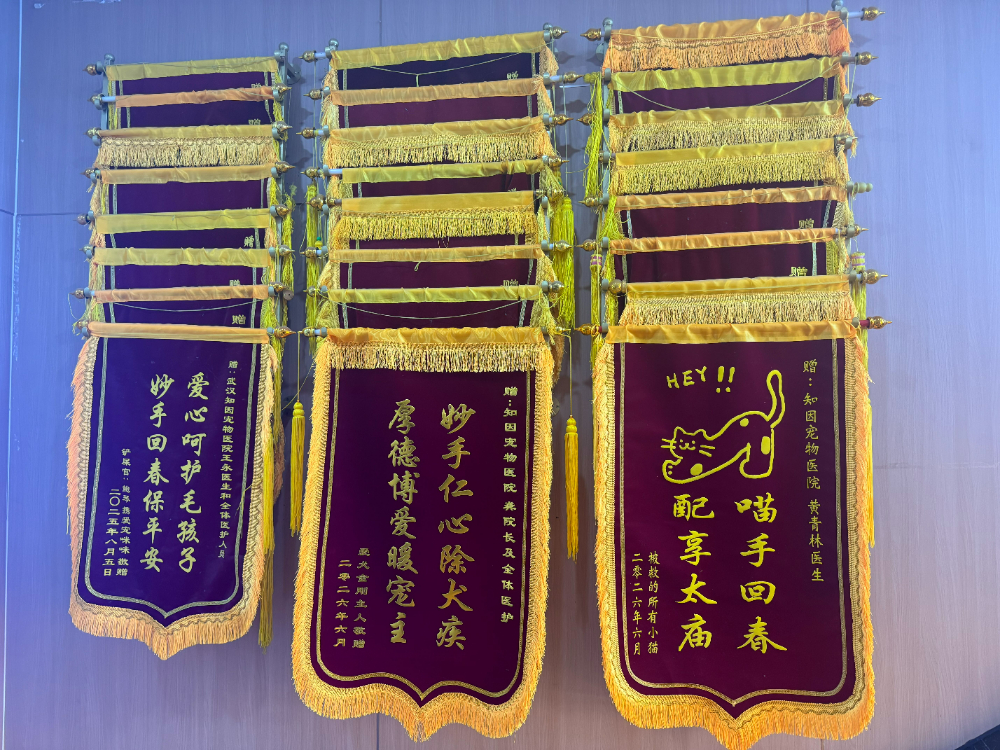 赠
赠
赠
赠
赠
赠：武汉知因宠物医院王永医生和全体医护人员
爱心呵护毛孩子
妙手回春保平安
二〇二五年八月五日
赠：知因宠物医院 龚院长及全体医护
妙手仁心除犬疾
厚德博爱暖宠主
爱犬金刚主人敬赠
二零二六年六月
HEY!!
赠：知因宠物医院 黄青林医生
喵手回春
配享太庙
被救的所有小猫
二零二六年六月